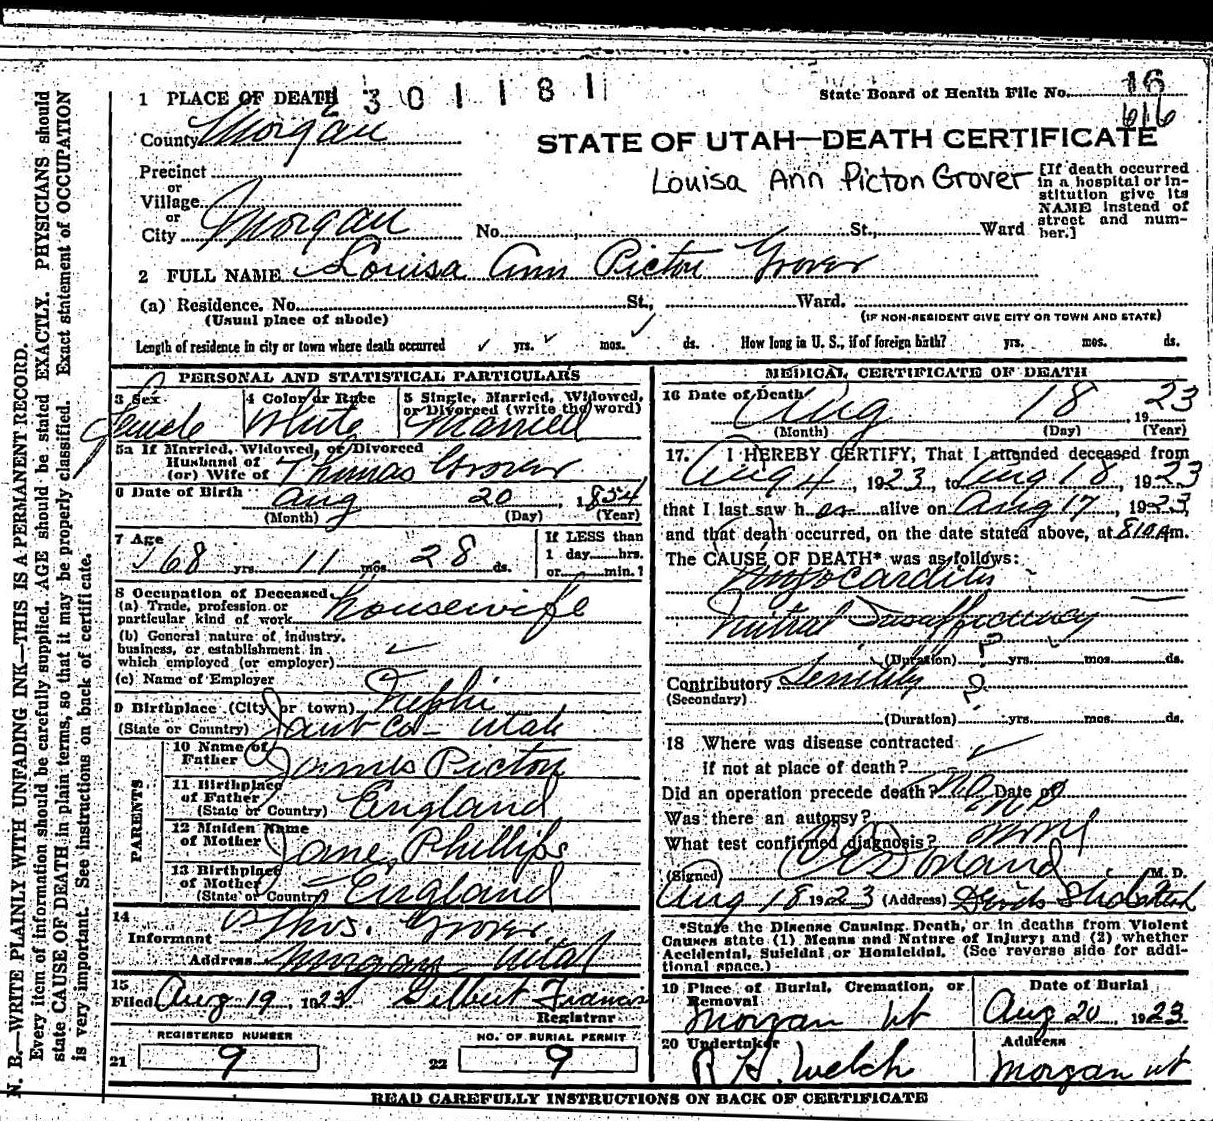 1 PLACE OF DEATH 2301181
State Board of Health File No. 16
616
County Morgan
STATE OF UTAH—DEATH CERTIFICATE
Precinct
or
Village
or
City Morgan
Louisa Ann Picton Grover
[If death occurred
in a hospital or in-
stitution give its
NAME instead of
street and num-
ber.]
No. St., Ward
2 FULL NAME Louisa Ann Picton Grover
(a) Residence. No. St., Ward.
(Usual place of abode) (IF NON-RESIDENT GIVE CITY OR TOWN AND STATE)
Length of residence in city or town where death occurred yrs. mos. ds. How long in U. S., if of foreign birth? yrs. mos. ds.
PERSONAL AND STATISTICAL PARTICULARS
3 Sex Female
4 Color or Race White
5 Single, Married, Widowed,
or Divorced (write the word)
Married
5a If Married, Widowed, or Divorced
Husband of
(or) Wife of Thomas Grover
6 Date of Birth Aug 20, 1854
(Month) (Day) (Year)
7 Age 68 yrs. 11 mos. 28 ds.
If LESS than
1 day hrs.
or min.?
8 Occupation of Deceased
(a) Trade, profession or
particular kind of work housewife
(b) General nature of industry,
business, or establishment in
which employed (or employer)
(c) Name of Employer
9 Birthplace (City or town) Nephi
(State or Country) Juab Co- Utah
PARENTS
10 Name of
Father James Picton
11 Birthplace
of Father
(State or Country) England
12 Maiden Name
of Mother Jane Phillips
13 Birthplace
of Mother
(State or Country) England
14
Informant Thos. Grover
Address Morgan Utah
15
Filed Aug 19, 1923 Gilbert Francis
Registrar
REGISTERED NUMBER
21 9
NO. OF BURIAL PERMIT
22 9
MEDICAL CERTIFICATE OF DEATH
16 Date of Death Aug 18 1923
(Month) (Day) (Year)
17. I HEREBY CERTIFY, That I attended deceased from
Aug 4, 1923, to Aug 18, 1923
that I last saw her alive on Aug 17, 1923,
and that death occurred, on the date stated above, at 810 Am.
The CAUSE OF DEATH* was as follows:
Myocarditis
Mitral Insufficiency
(Duration) ? yrs. mos. ds.
Contributory Senility ?
(Secondary)
(Duration) yrs. mos. ds.
18 Where was disease contracted
if not at place of death?
Did an operation precede death? no Date of
Was there an autopsy? no
What test confirmed diagnosis? none
(Signed) M. D.
Aug 18 1923 (Address)
*State the Disease Causing Death, or in deaths from Violent
Causes state (1) Means and Nature of Injury; and (2) whether
Accidental, Suicidal or Homicidal. (See reverse side for addi-
tional space.)
19 Place of Burial, Cremation, or
Removal
Morgan Ut
Date of Burial
Aug 20, 1923
20 Undertaker
R H. Welch
Address
Morgan Ut
READ CAREFULLY INSTRUCTIONS ON BACK OF CERTIFICATE
N. B.—WRITE PLAINLY WITH UNFADING INK—THIS IS A PERMANENT RECORD.
Every item of information should be carefully supplied. AGE should be stated EXACTLY. PHYSICIANS should
state CAUSE OF DEATH in plain terms, so that it may be properly classified. Exact statement of OCCUPATION
is very important. See instructions on back of certificate.